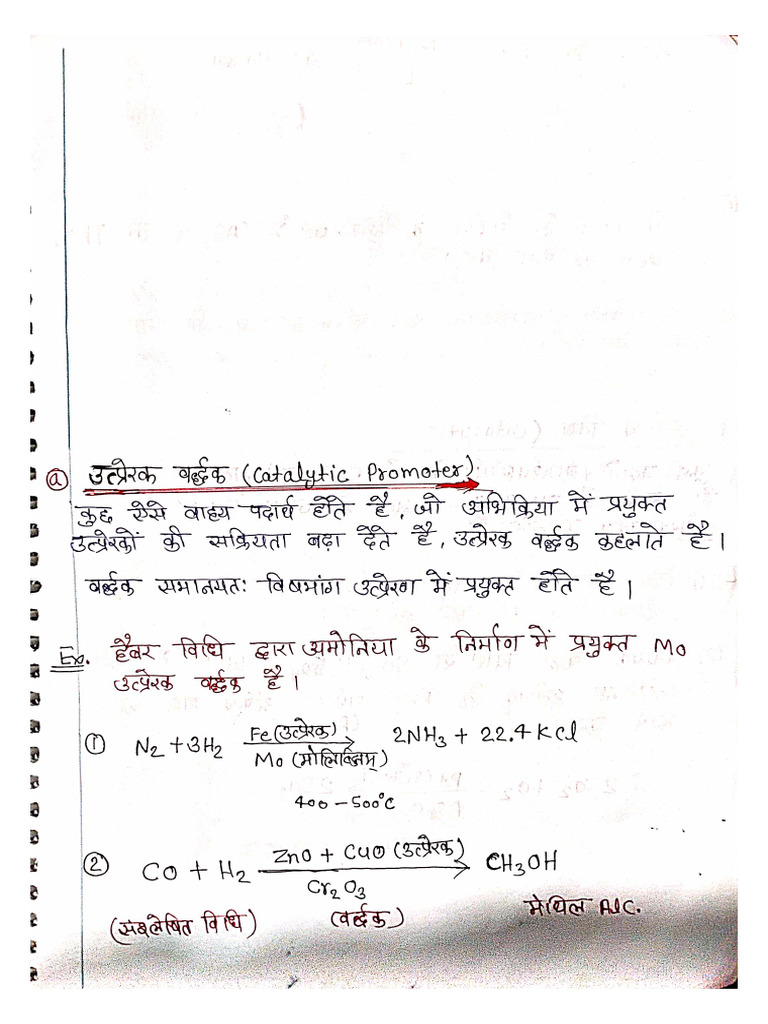 (a) उत्प्रेरक वर्द्धक (Catalytic Promoter)
कुछ ऐसे वाह्य पदार्थ होते है, जो अभिक्रिया में प्रयुक्त
उत्प्रेरकों की सक्रियता बढ़ा देते है, उत्प्रेरक वर्द्धक कहलाते है।
बर्द्धक समानयतः विषमांग उत्प्रेरण में प्रयुक्त होते है।
Ex. हैबर विधि द्वारा अमोनिया के निर्माण में प्रयुक्त Mo
उत्प्रेरक वर्द्धक है।
Fe (उत्प्रेरक)
① N2 + 3H2 ⟶ 2NH3 + 22.4 KCl
Mo (मोलिब्डिनम्)
400 – 500°C
ZnO + CuO (उत्प्रेरक)
② CO + H2 ⟶ CH3OH
Cr2O3
(संश्लेषित विधि) (वर्द्धक) मेथिल Alc.